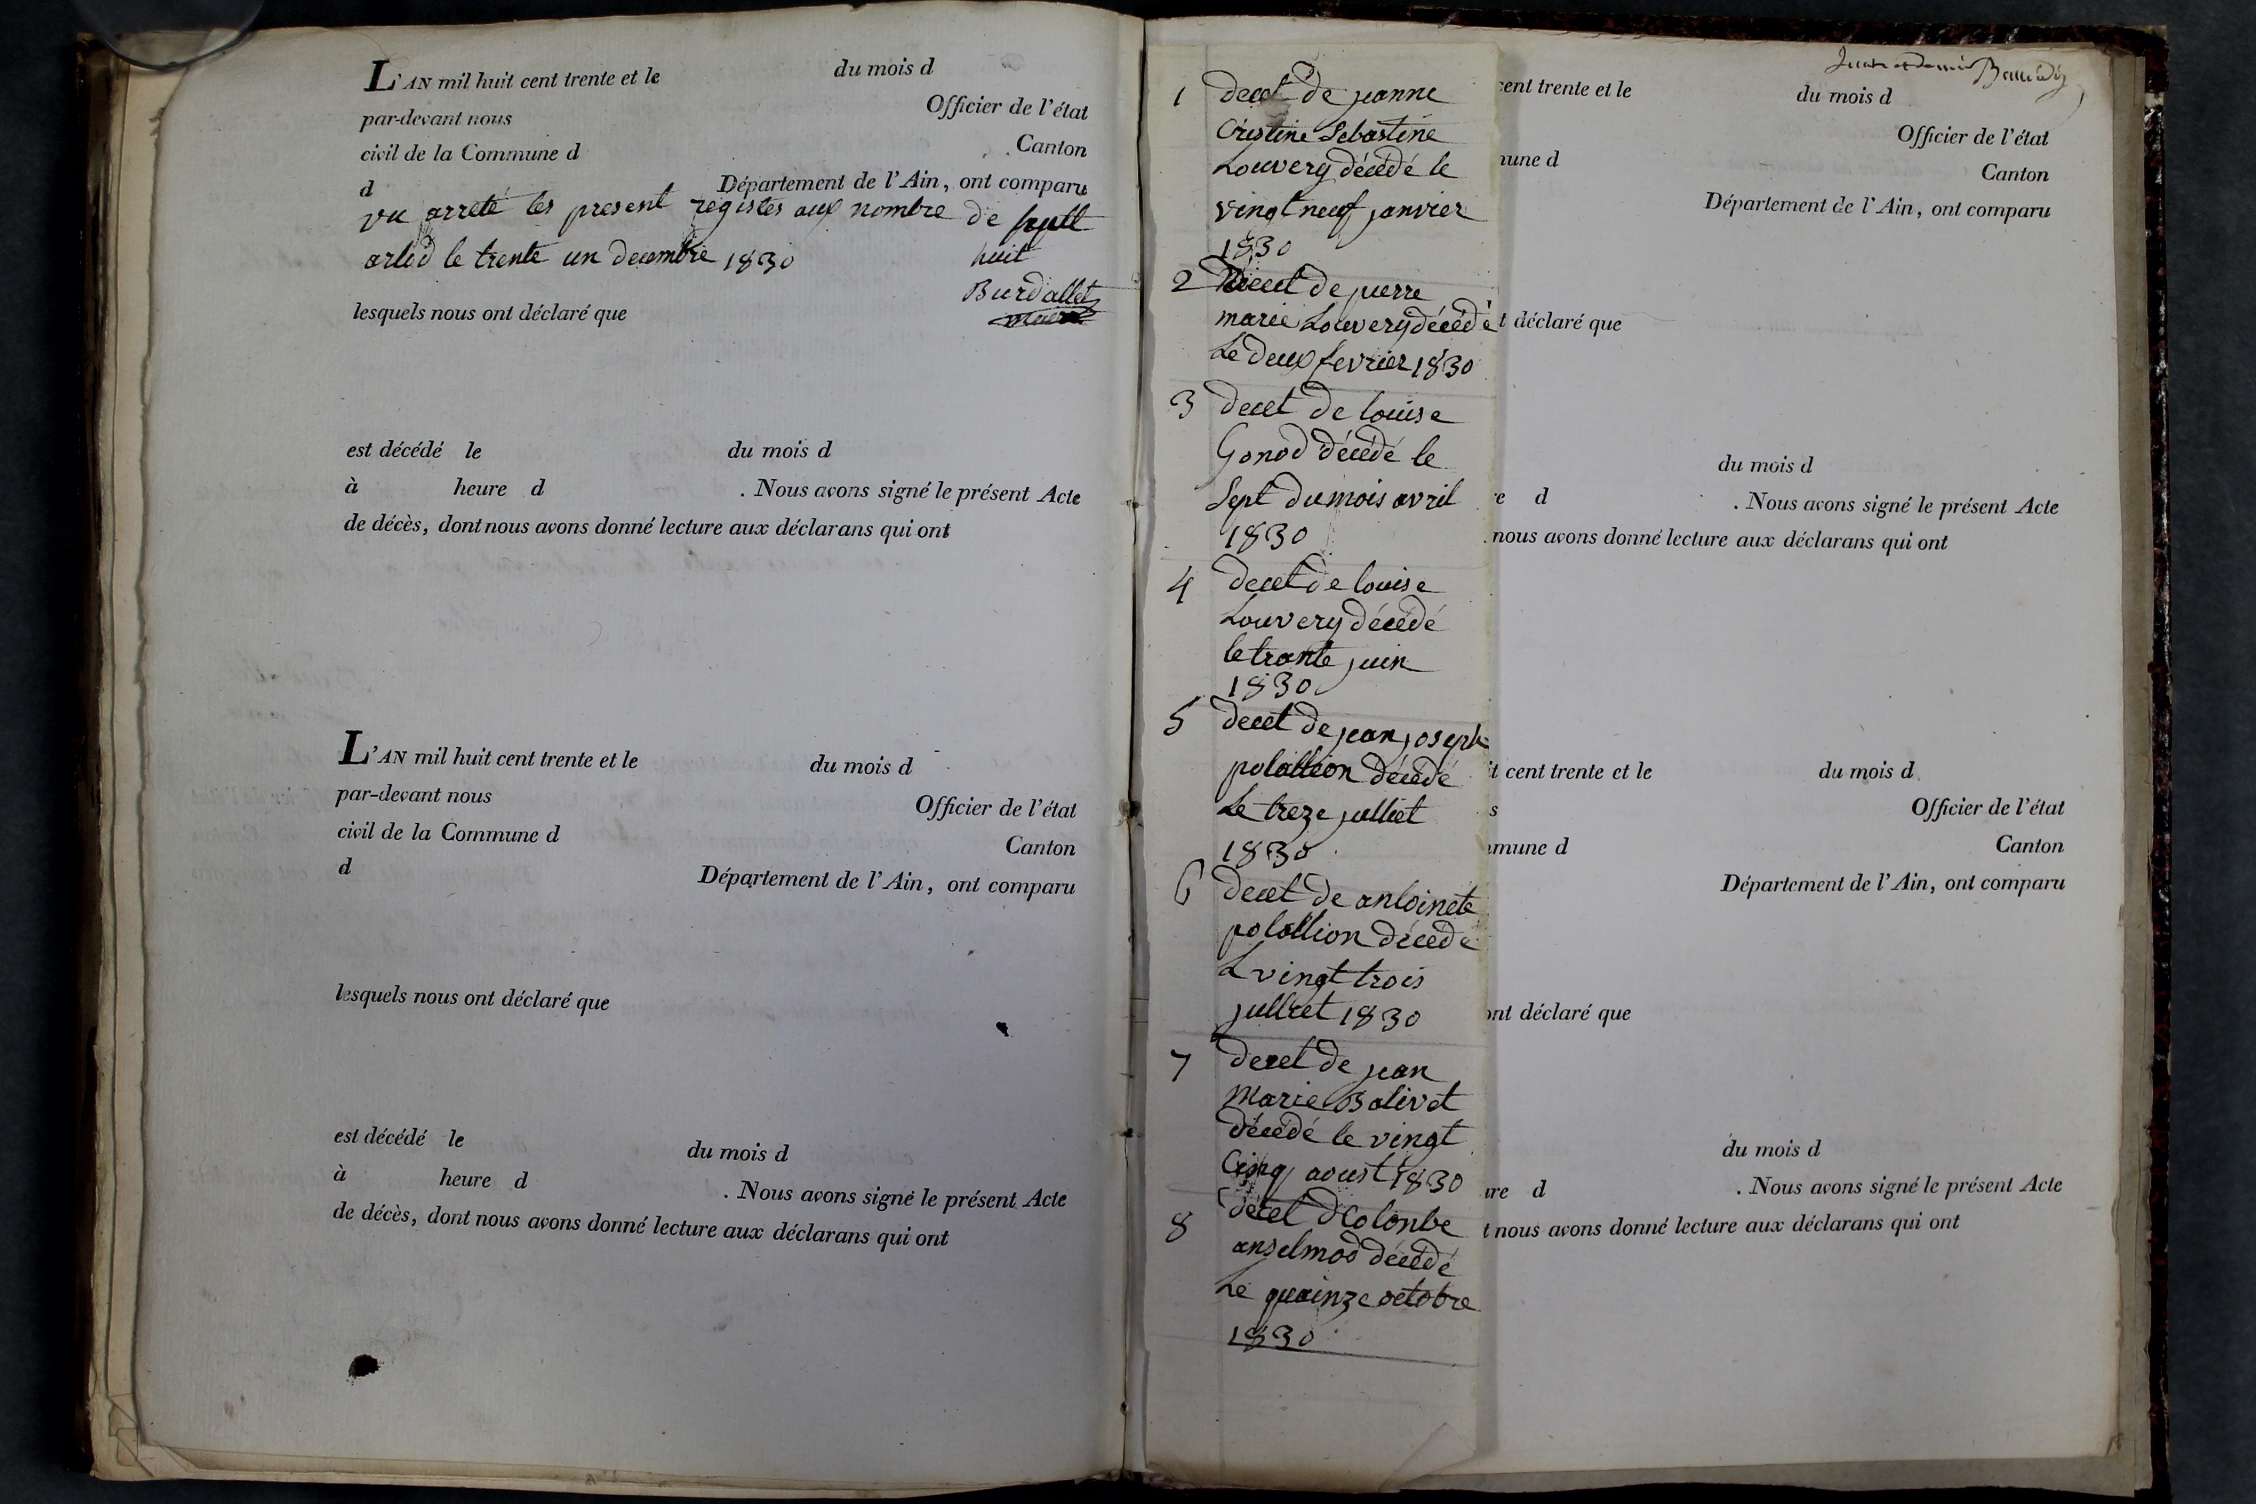 L'AN mil huit cent trente et le du mois d
par-devant nous Officier de l'état
civil de la Commune d Canton
d Département de l'Ain, ont comparu
vu arreté les present registes aux nombre de
huit
arlod le trente un decembre 1830
Burdallet
maire
lesquels nous ont déclaré que
est décédé le du mois d
à heure d . Nous avons signé le présent Acte
de décès, dont nous avons donné lecture aux déclarans qui ont
L'AN mil huit cent trente et le du mois d
par-devant nous Officier de l'état
civil de la Commune d Canton
d Département de l'Ain, ont comparu
lesquels nous ont déclaré que
est décédé le du mois d
à heure d . Nous avons signé le présent Acte
de décès, dont nous avons donné lecture aux déclarans qui ont
1 decet de jeanne
Cristine Sebastine
Louvery décédé le
vingt neuf janvier
1830
2 decet de pierre
marie Louvery décédé
Le deux fevrier 1830
3 decet de louise
Gonod décédé le
Sept du mois avril
1830
4 decet de louise
Louvery décédé
le trante juin
1830
5 decet de jean joseph
polallion décédé
Le treze julliet
1830
6 decet de antoinete
polallion décédé
L vingt trois
julliet 1830
7 decet de jean
Marie Balivet
décédé le vingt
Cinq aoust 1830
8 decet d Colonbe
anselmod décédé
Le quinze octobre
1830
cent trente et le du mois d
Officier de l'état
mune d Canton
Département de l'Ain, ont comparu
t déclaré que
du mois d
e d . Nous avons signé le présent Acte
nous avons donné lecture aux déclarans qui ont
t cent trente et le du mois d
s Officier de l'état
mmune d Canton
Département de l'Ain, ont comparu
ont déclaré que
du mois d
ure d . Nous avons signé le présent Acte
t nous avons donné lecture aux déclarans qui ont